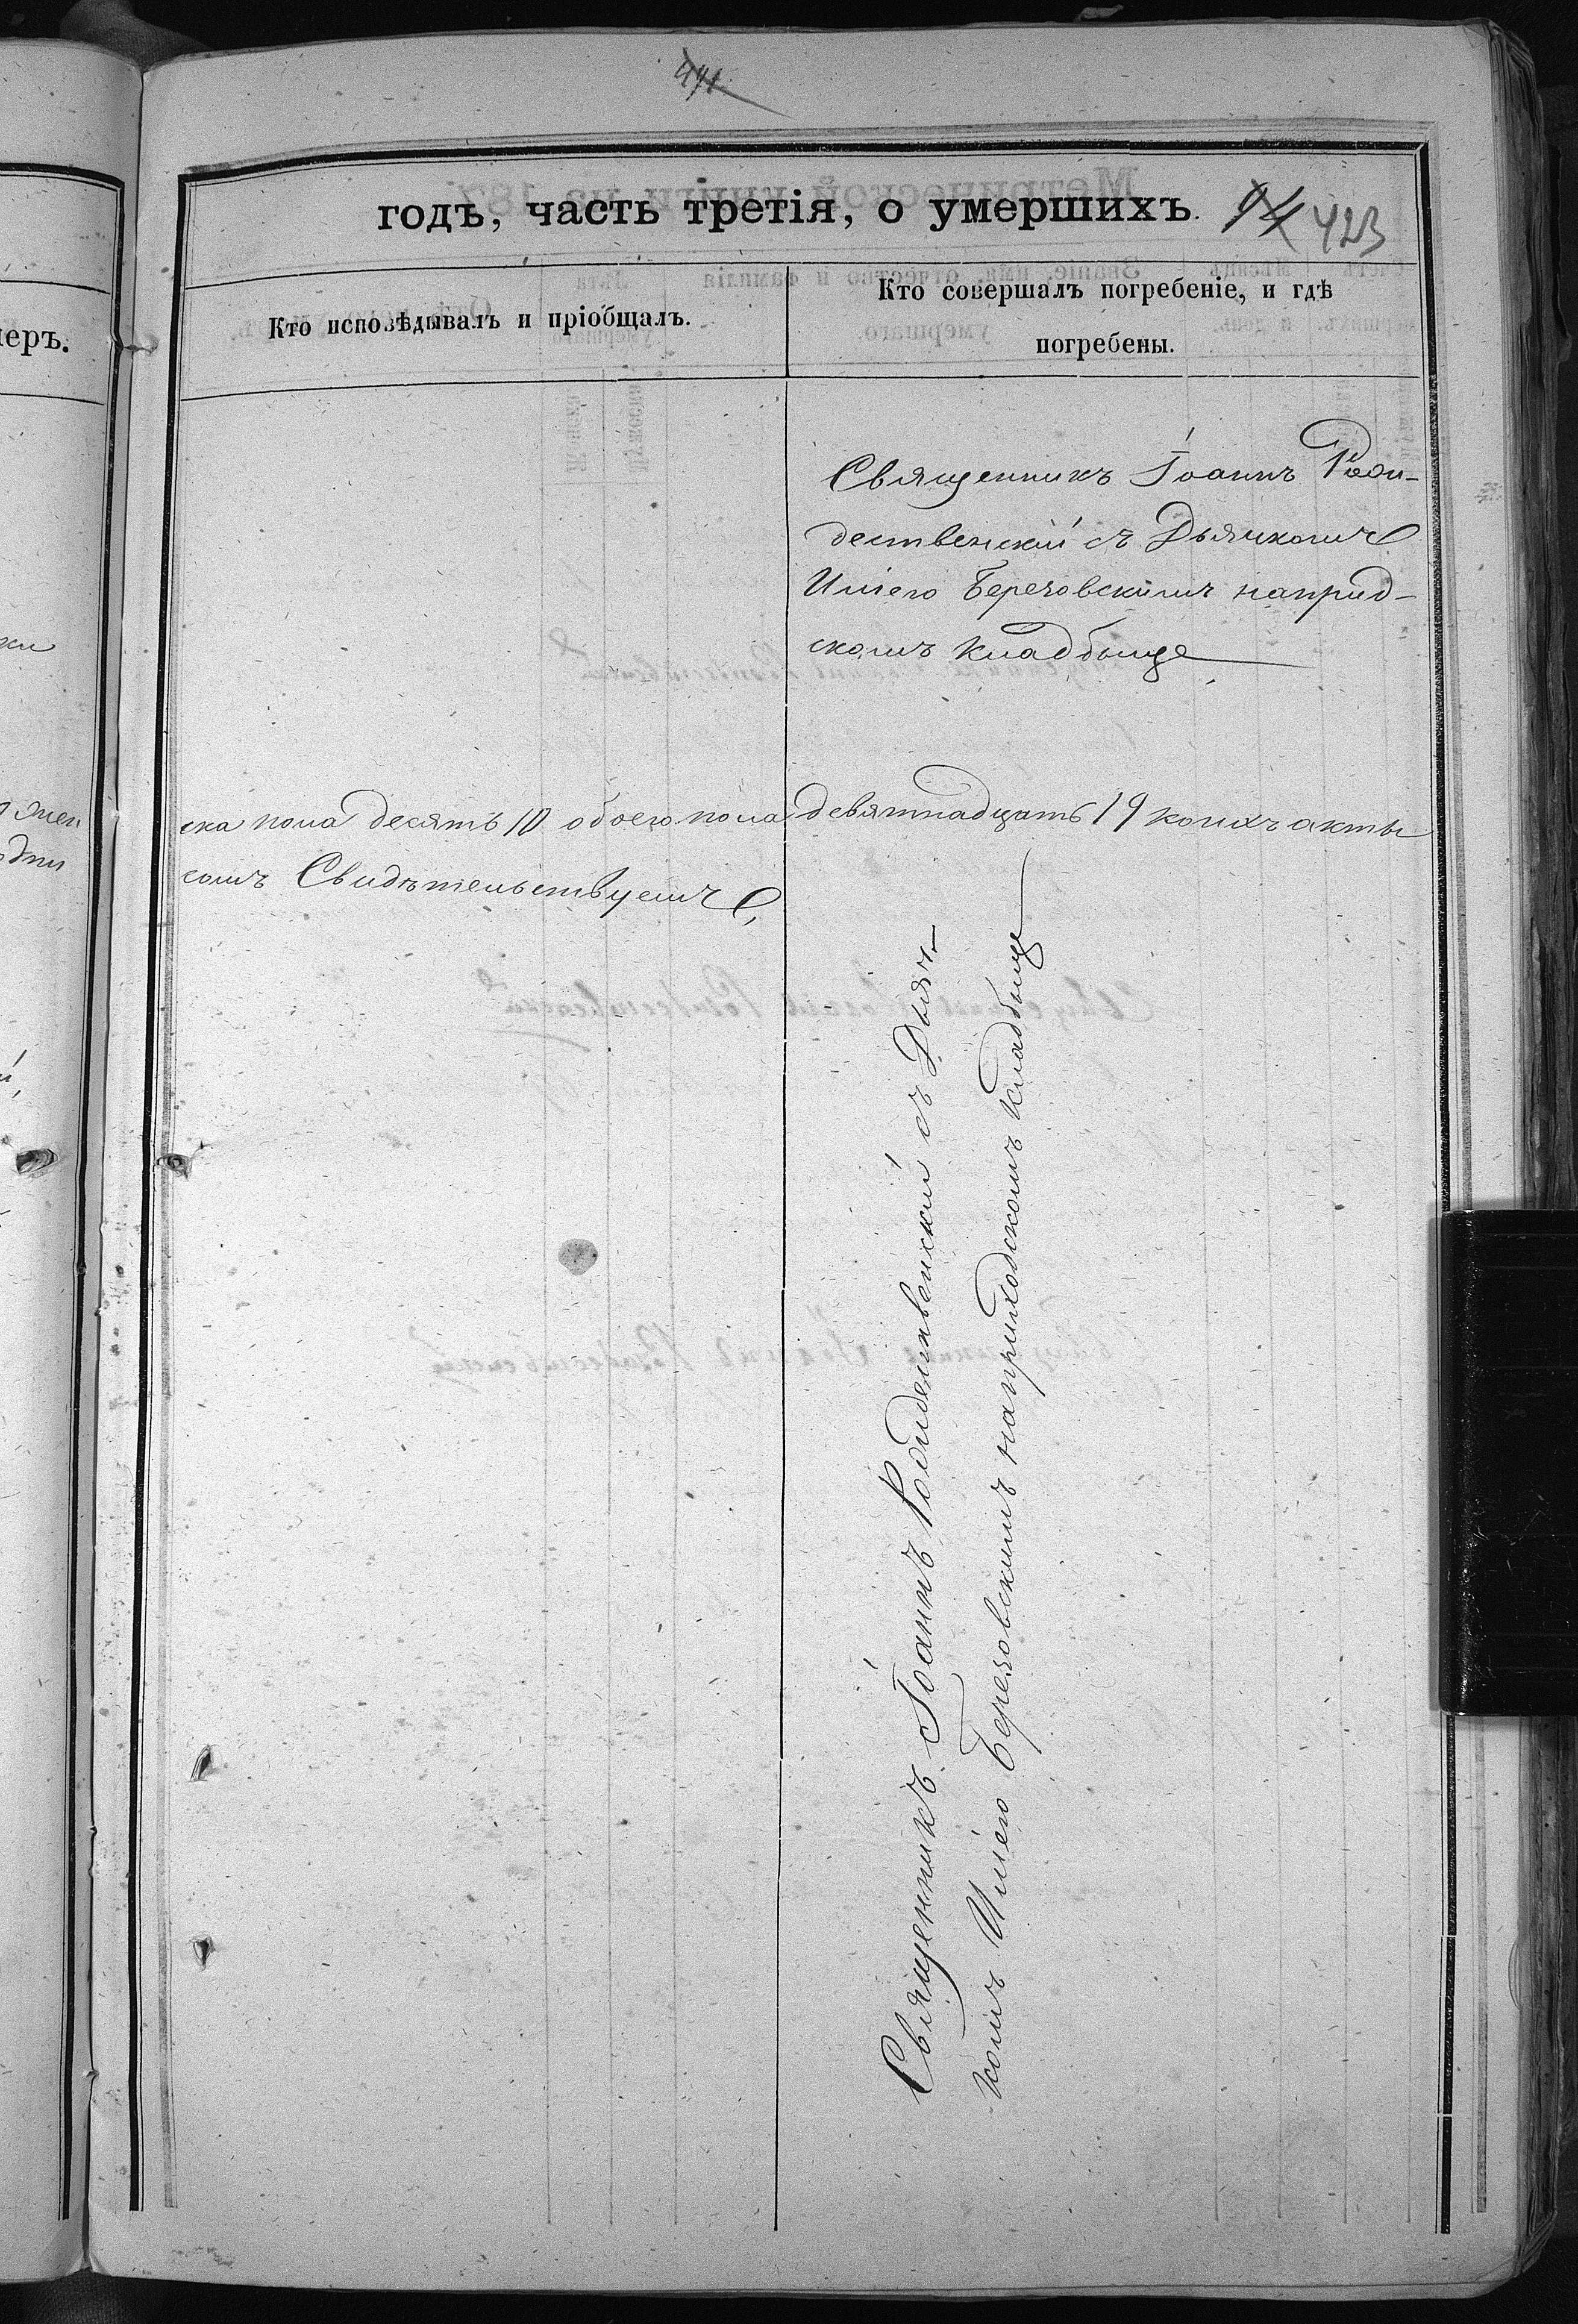 годъ, часть третія, о умершихъ. 423
Кто исповѣдывалъ и пріобщалъ.
Кто совершалъ погребеніе, и гдѣ
погребены.
меръ.
Священникъ Іоаннъ Рож-
дественскій съ Дьячкомъ
Иліею Березовскимъ наприд-
скомъ кладбыще
ска пола десять 10 обоего пола девятнадцать 19 коихъ акты
сомъ Свидѣтельствуемъ
Священникъ Іоаннъ Рождественскій съ Дьяч-
комъ Иліею Березовскимъ наприходскомъ кладбыще